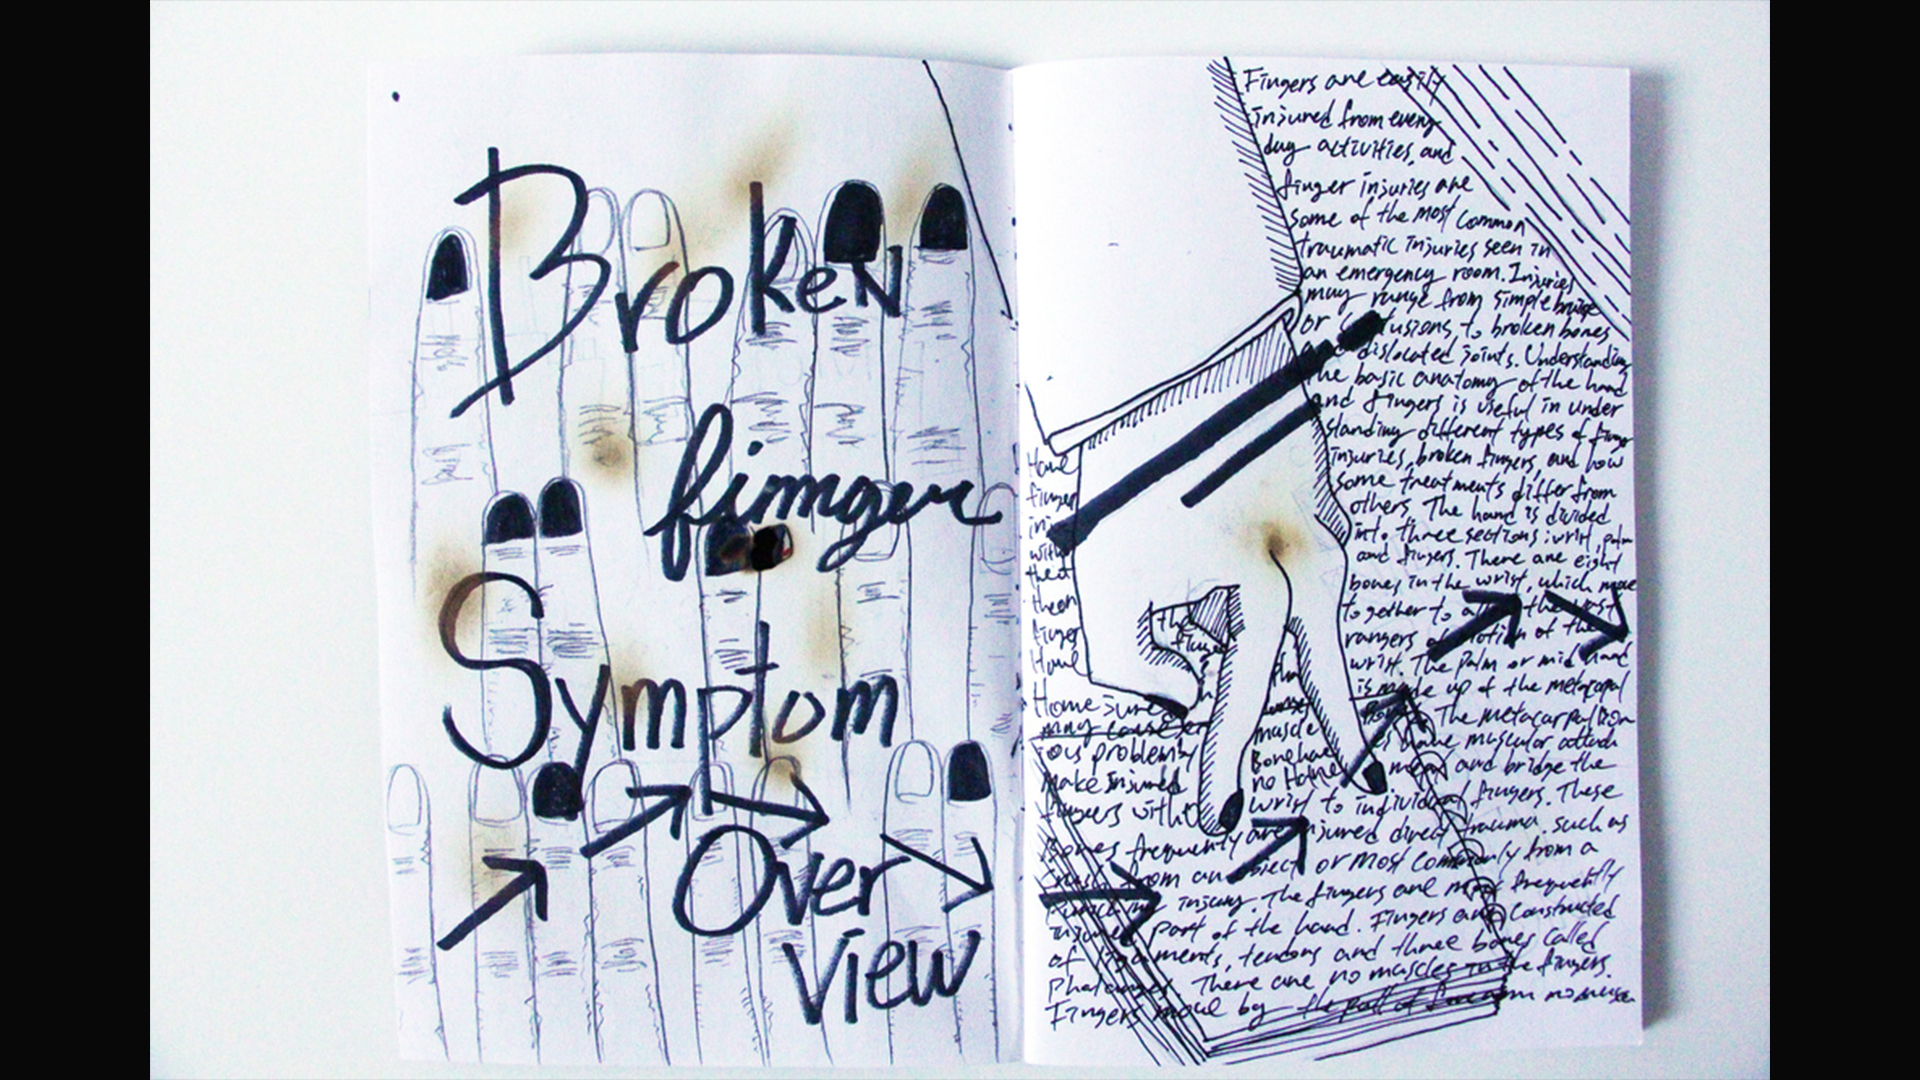 Broken
fimger
Symptom
Over
view
Fingers are easily
injured from every
day activities, and
finger injuries are
some of the most common
traumatic injuries seen in
an emergency room. Injuries
may range from simple bruise
or to broken bones
dislocated joints. Understanding
the basic anatomy of the hand
and fingers is useful in under
standing different types of finger
injuries, broken fingers, and how
some treatments differ from
others. The hand is divided
into three sections: wrist, palm
and fingers. There are eight
bones in the wrist, which move
together to the vast
rangers of motion of the
wrist. The palm or mid hand
is made up of the metacarpal
The metacarpal bon
have muscular attach
ment and bridge the
wrist to individual fingers. These
the
finger
muscle
Bone have
no Hand
Have
finger
inj
with
theat
then
finger
Have
Home
may cause er
ious problems
make injured
fingers with
Bones frequently are injured direct trauma such as
crush from an object or most commonly from a
injury. The fingers are most frequently
injured part of the hand. Fingers are constructed
of ligaments, tendons and three bones called
phalanges. There are no muscles in the fingers.
Fingers move by the pull of